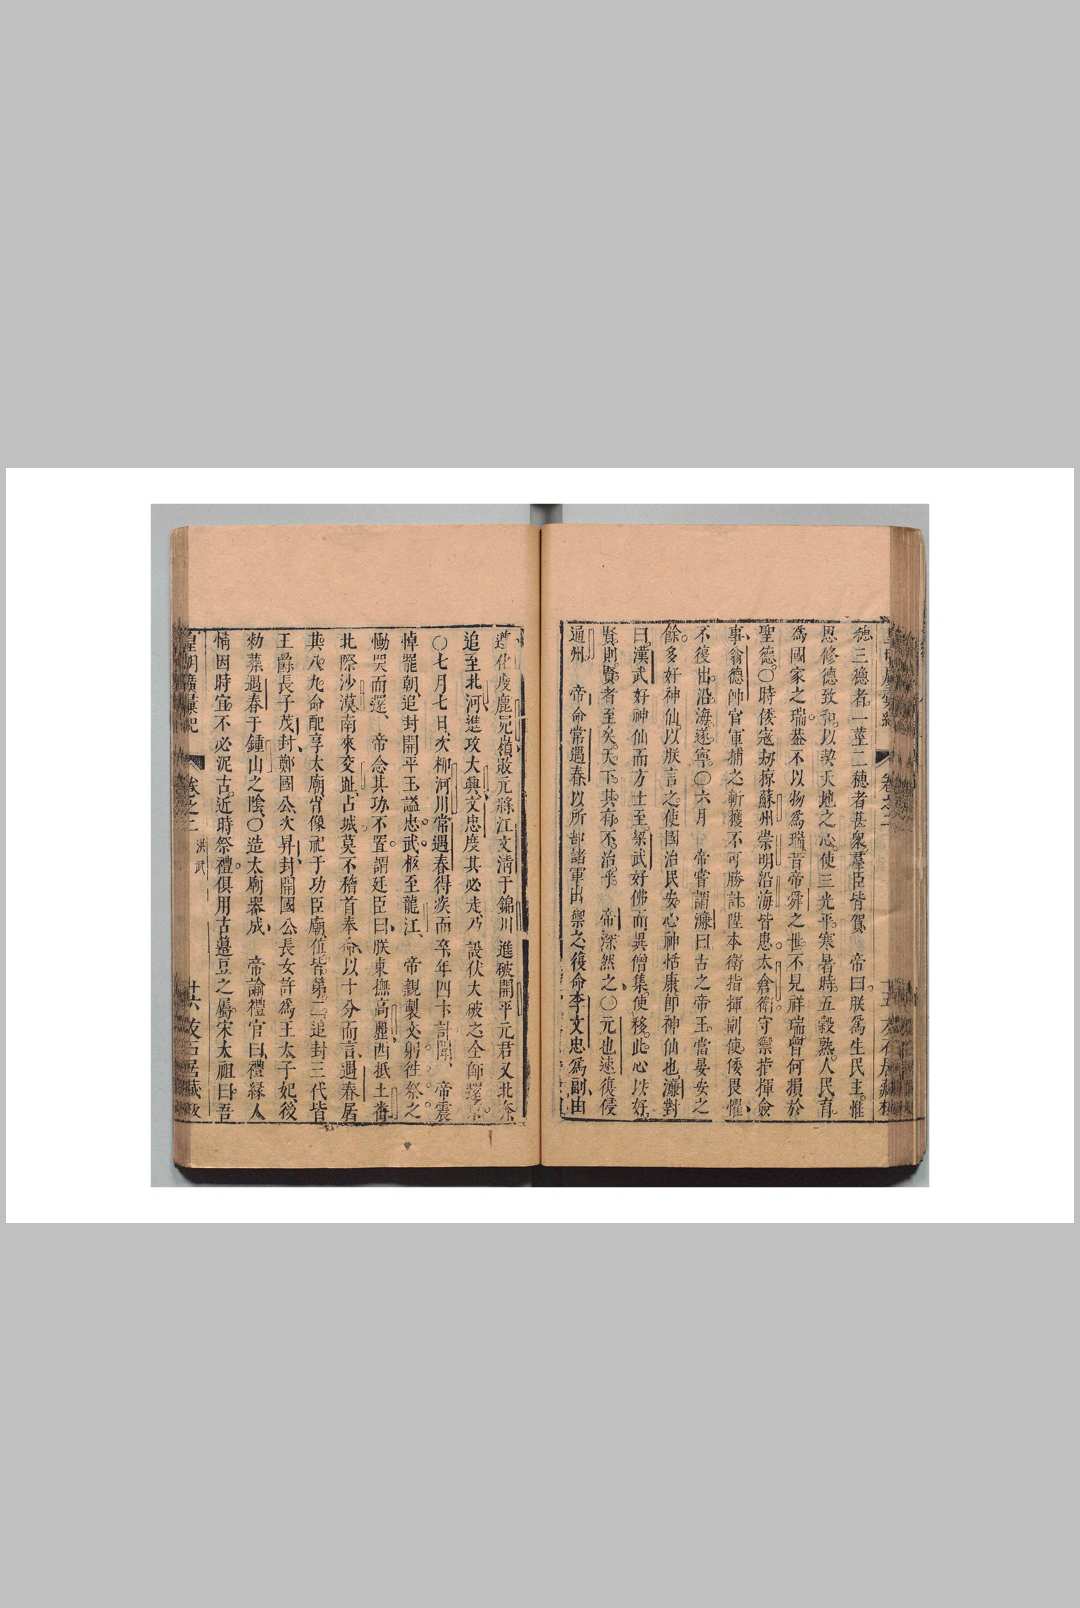 穗三穗者一莖二穗者甚衆羣臣皆賀帝曰朕爲生民主惟
思修德致和以契天地之心使三光平寒暑時五穀熟人民育
爲國家之瑞葢不以物爲瑞昔帝舜之世不見祥瑞曾何損於
聖德〇時倭寇刼掠蘇州崇明沿海皆患太倉衛守禦指揮僉
事翁德帥官軍捕之斬獲不可勝計陞本衛指揮副使倭畏懼
不復出沿海遂寧〇六月帝嘗謂濂曰古之帝王當晏安之
餘多好神仙以朕言之使國治民安心神恬康卽神仙也濂對
曰漢武好神仙而方士至梁武好佛而異僧集使移此心以好
賢則賢者至矣天下其有不治乎帝深然之〇元也速復侵
通州帝命常遇春以所部諸軍出禦之後命李文忠爲副由
遵化度鹿兒嶺敗元將江文清于錦川進破開平元君又北奔
追至北河進攻大興文忠度其必走乃設伏大破之全師還
〇七月七日次柳河川常遇春得疾而卒年四十訃聞帝震
悼罷朝追封開平王謚忠武柩至龍江帝親製文躬徃祭之
慟哭而還帝念其功不置謂廷臣曰朕東撫高麗西抵土番
北際沙漠南來交趾占城莫不稽首奉命以十分而言遇春居
其八九命配享太廟肖像祀于功臣廟位皆第二追封三代皆
王爵長子茂封鄭國公次昇封開國公長女許爲王太子妃後
勑葬遇春于鍾山之陰〇造太廟器成帝諭禮官曰禮緣人
情因時宜不必泥古近時祭禮俱用古籩豆之屬宋太祖曰吾
皇明廣彙紀 卷之二 洪武 十六 友石居藏板